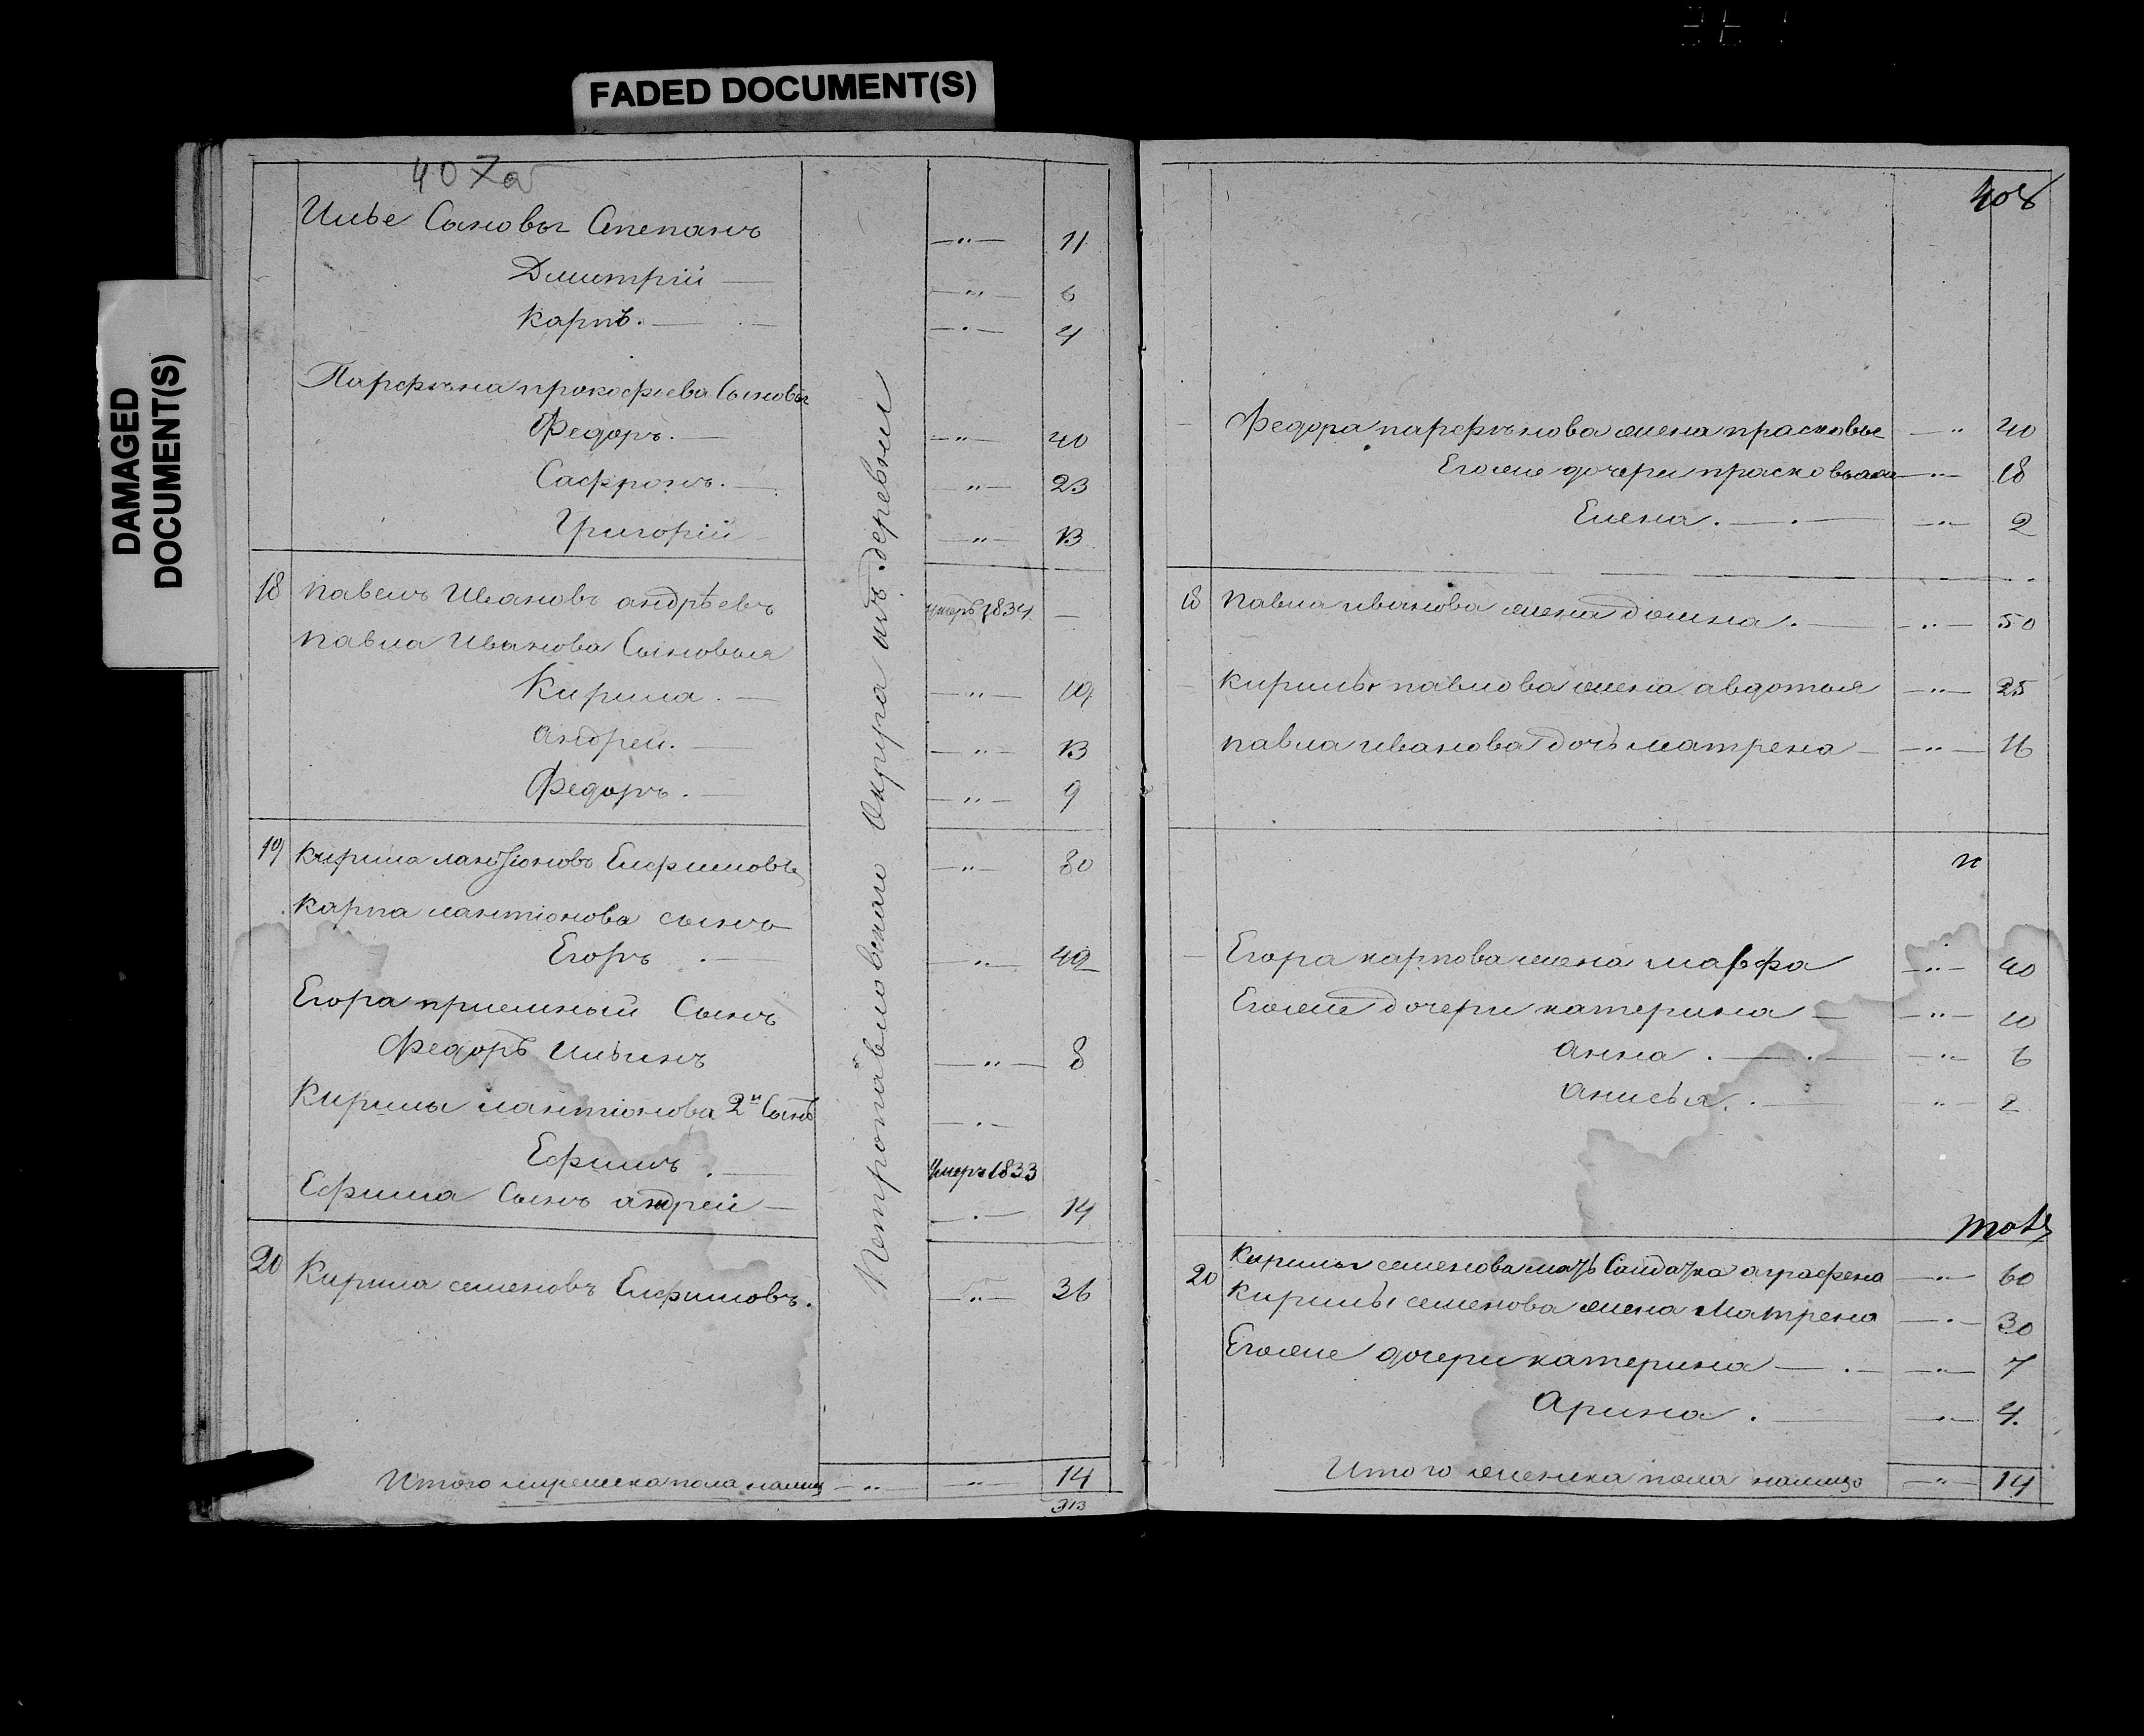 FADED DOCUMENT(S)
DAMAGED
DOCUMENT(S)
407а
Илье Сыновы Степанъ —"— 11
Димитрiй — —"— 6
карпъ. — —"— 4
Парфѣна прокофьева Сыновы
Федоръ. — —"— 40
Сафронъ. — —"— 23
Григорiй —"— 13
18 павелъ Ивановъ андрѣевъ умеръ 1834 —
павла Иванова Сыновья
Кирила. — —"— 19
андрей. — —"— 13
Федоръ. — —"— 9
19 кирила лантiоновъ Елфимовъ —"— 80
карпа лантiонова сынъ
Егоръ . — —"— 42
Егора приемный Сынъ
Федоръ Ильинъ —"— 8
Кирилы лантiонова 2й Сынъ —"—
Ефимъ . — Умеръ 1833
Ефима Сынъ андрей — —"— 14
20 Кирила семеновъ Елфимовъ. —"— 36
Петропавловскаго Округа изъ деревни
Итого мужеска пола налицо —"— —"— 14
313
408
Федора парфѣнова жена прасковье —"— 40
Егоже дочери прасковья —"— 18
Елена. — . — —"— 2
18 павла иванова жена домна. — —"— 50
кирилы павлова жена авдотья —"— 25
павла иванова дочь матрена — —"— 16
и
Егора карпова жена марфа —"— 40
Егоже дочери катерина — —"— 10
анна. — . — —"— 6
анисья. . — —"— 2
тотъ
20 Кирилы семенова мать Солдатка аграфена —"— 60
Кирилы семенова жена Матрена —"— 30
Егоже дочери катерина — . — —"— 7
Арина . — —"— 4.
Итого женска пола налицо —"— 14